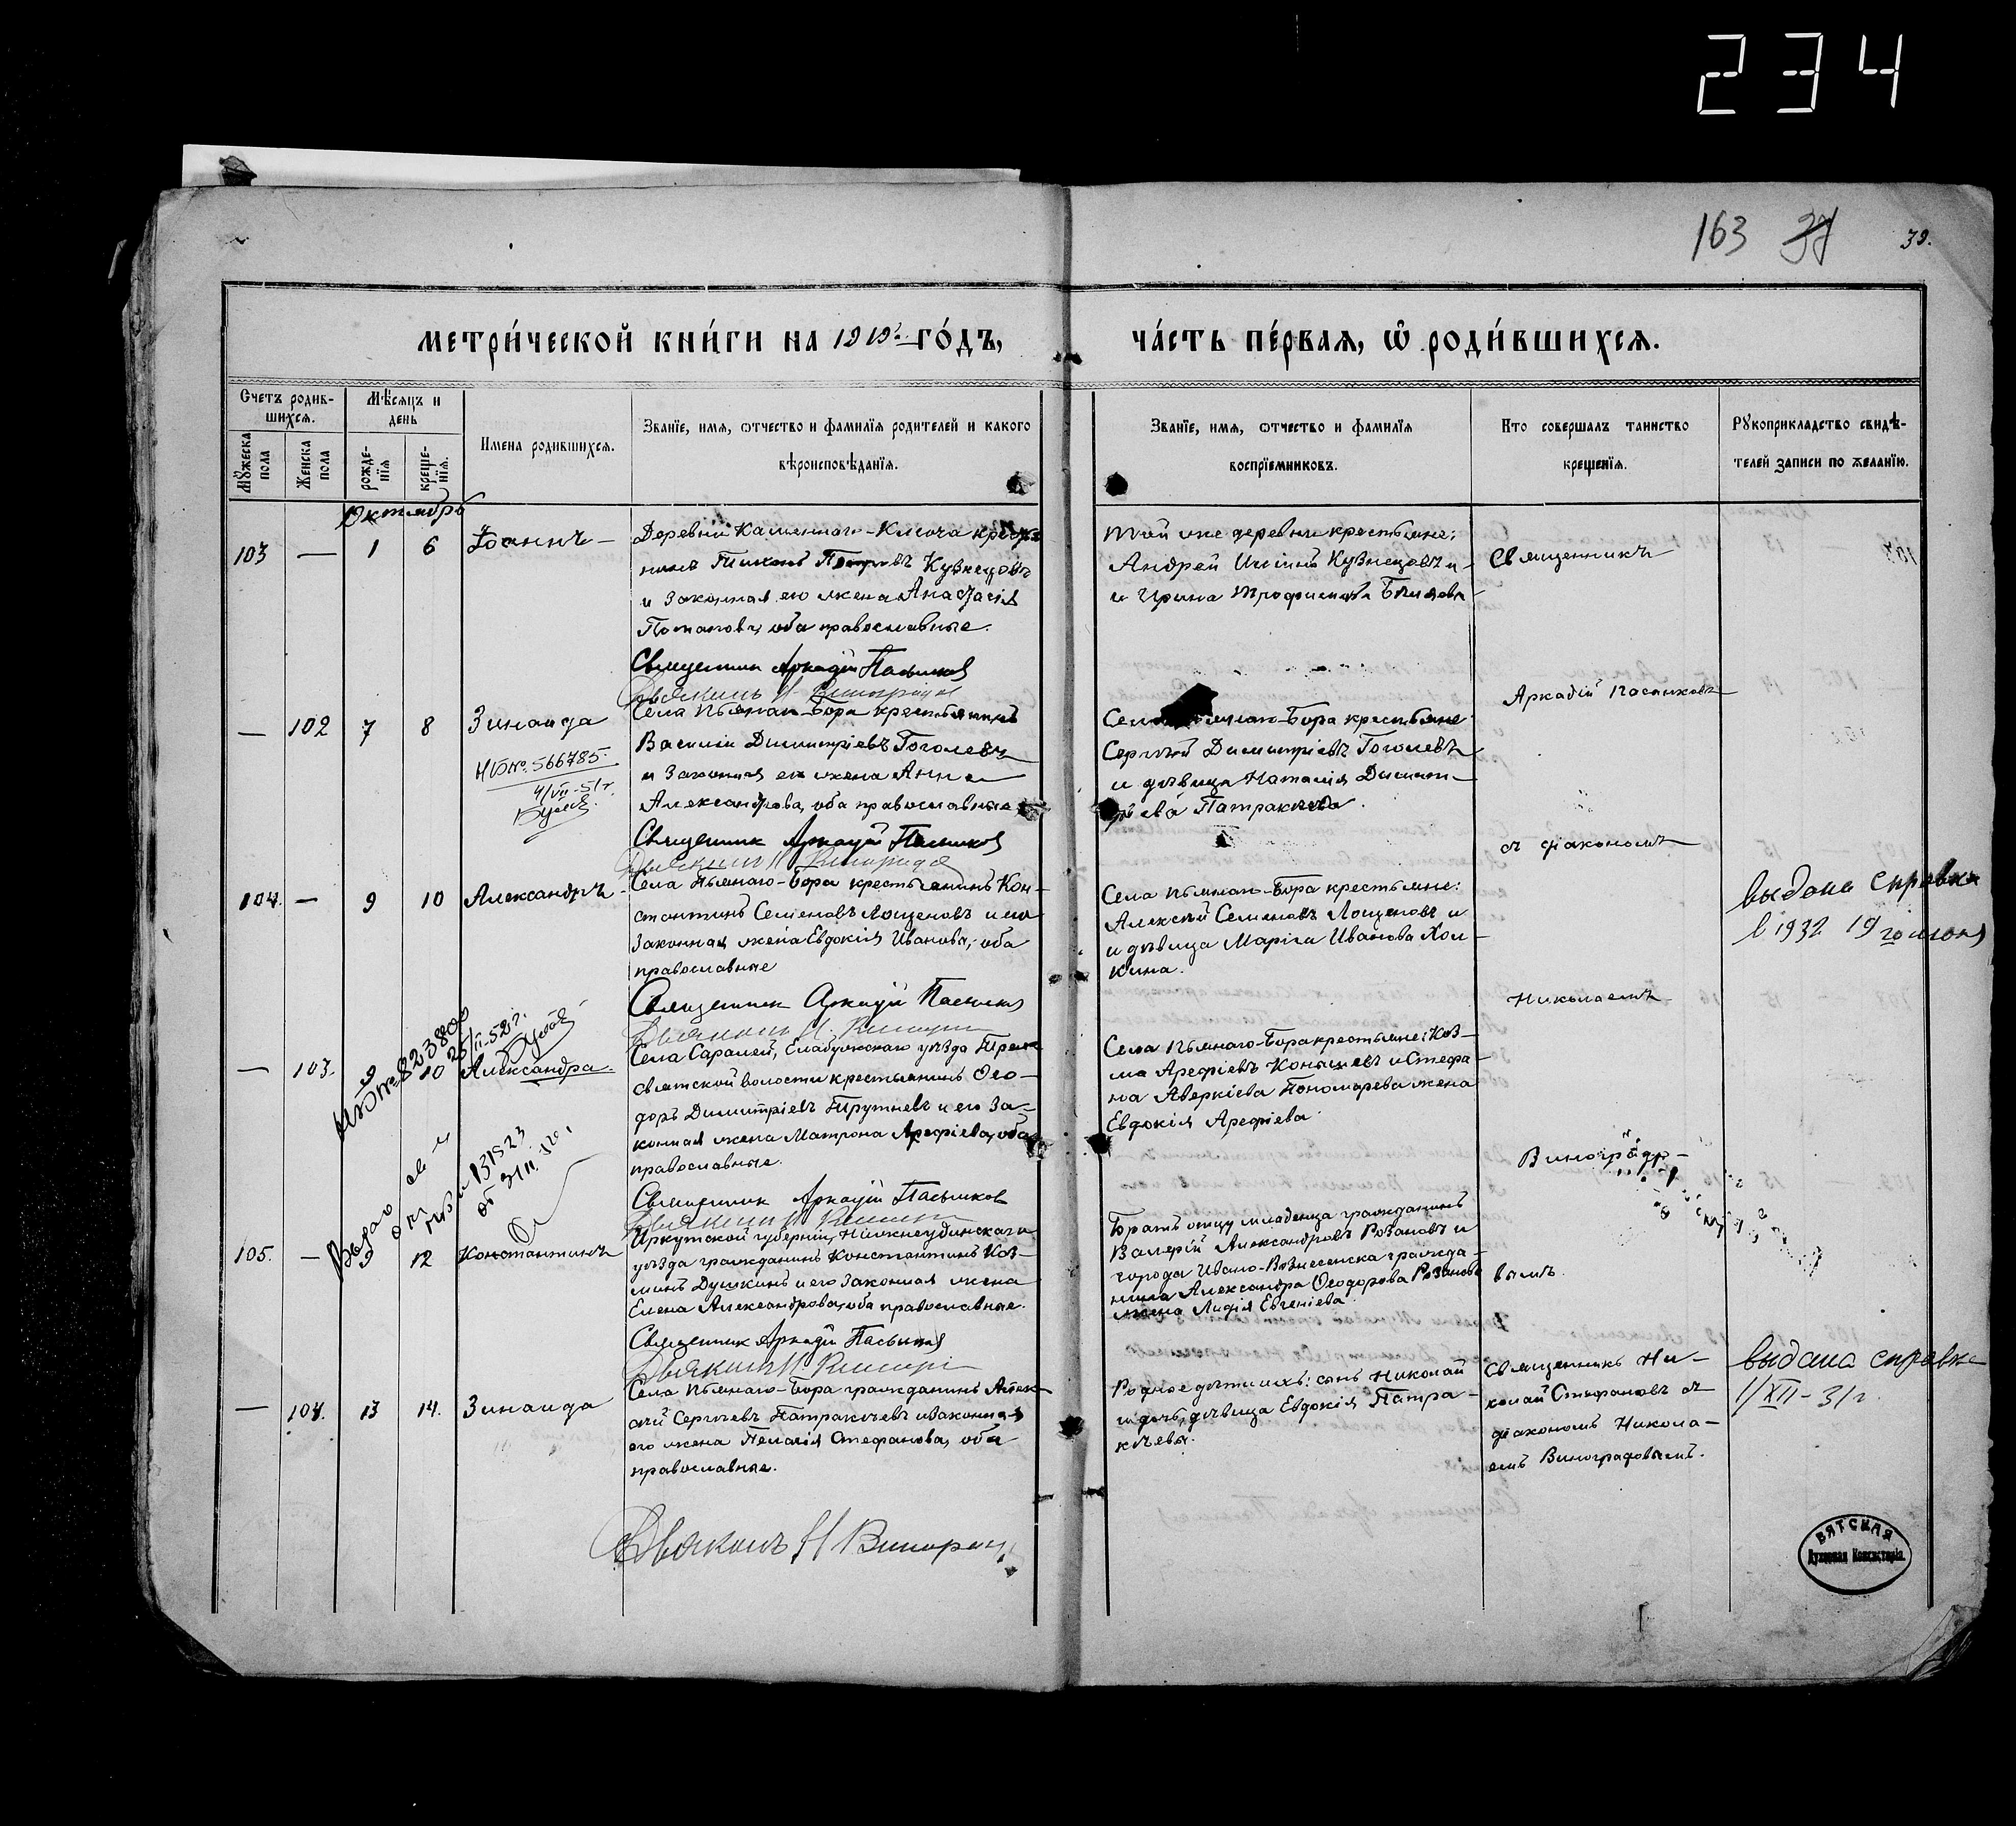 234
163 37 39.
метри́ческой кни́ги на 1919 го́дъ,
ча́сть пе́рвая, ѡ҆ роди́вшихся.
Счетъ родив-
шихся.
Мѣсяцъ и
день
Мужеска
пола
Женска
пола
рожде-
нїя
креще-
нїя.
Имена родившихся.
Званїе, имя, отчество и фамилїя родителей и какого
вѣроисповѣданїя.
Званїе, имя, отчество и фамилїя
воспрїемниковъ.
Кто совершалъ таинство
крещенїя.
Рукоприкладство свидѣ-
телей записи по желанїю.
Октябрь
103 — 1 6 Іоаннъ —
Деревни Каменнаго-Ключа кресть
нинъ Тихонъ Петровъ Кузнецовъ
и законная его жена Анастасія
Потапова, оба православные.
Священник Аркадій Пасынков
Діаконъ Н. Виноградов
той же деревни крестьяне:
Андрей Кузнецовъ и
и Ирина Трофимова
Священникъ
Аркадій Пасынковъ
съ діакономъ
Николаемъ
Виноградо-
вымъ.
— 102 7 8 Зинаида
№ 566785.
4/VII-51г.
Села Пьянаго-Бора крестьянинъ
Василій Димитріевъ Гоголевъ
и законная его жена Анна
Александрова, оба православные
Священник Аркадій Пасынков
Села Пьянаго-Бора крестьяне
Сергѣй Димитріевъ Гоголевъ
и дѣвица Наталія Димит-
ріева Патракеева.
104. — 9 10 Александръ
Села Пьянаго-Бора крестьянинъ Кон-
стантинъ Семеновъ Лощеновъ и его
законная жена Евдокія Иванова, оба
православные
Священник Аркадій Пасынков
Села Пьянаго-Бора крестьяне:
Алексѣй Семеновъ Лощеновъ и
и дѣвица Марія Иванова Хол-
кина.
выдана справка
в 1932 19го июня
— 103. 9 10 Александра.
№ 823800
25/II-52г.
Села Саралей, Елабужскаго уѣзда Трех-
святской волости крестьянинъ Ѳео-
доръ Димитріевъ Трутневъ и его за-
конная жена Матрона Арефіева, оба
православные.
Священник Аркадій Пасынков
Села Пьянаго-Бора крестьяне: Коз-
ма Арефіевъ Конышевъ и Стефа-
на Аверкіева Пономарева жена
Евдокія Арефіева.
131523
105. — 9 12 Константинъ
Иркутской губерніи, Нижнеудинскаго
уѣзда гражданинъ Константинъ Коз-
минъ Душкинъ и его законная жена
Елена Александрова, оба православные.
Священник Аркадій Пасынков
Братъ отцу младенца гражданинъ
Валерій Александровъ Розановъ и
города Ивано-Вознесенска гражда-
нина Александра Ѳеодорова Розанова
жена Лидія Евгеніева.
— 104. 13 14. Зинаида
Села Пьянаго-Бора гражданинъ Алек-
сѣй Сергѣевъ Патракѣевъ и законная
его жена Пелагія Стефанова, оба
православные.
Родное дѣти ихъ: сынъ Николай
и дочь, дѣвица Евдокія Патра-
кѣевы.
священникъ Ни-
колай Стефановъ съ
діакономъ Никола-
емъ Виноградовымъ.
выдана справка
1/XII-31г
Діаконъ Н Виноградов
ВЯТСКАЯ
Духовная Консисторія.